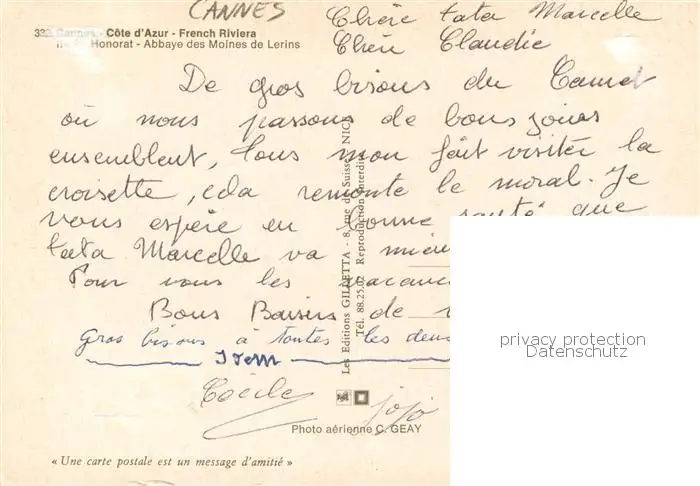 CANNES
Chère tata Marcelle
332 Cannes - Côte d'Azur - French Riviera
Chère Claudie
Ile St Honorat - Abbaye des Moines de Lerins
De gros bisous du Cannet
où nous passons de bons jours
ensemblent, tous mon fait visiter la
croisette, cela remonte le moral. Je
vous espère en bonne santé que
tata Marcelle va mieu
Pour vous les vacanc
Bons Baisers de
Gros bisous à toutes les deux
Idem
Cécile
jojo
Les Editions GILLETTA - 8, rue de Suisse - NICE
Tél. 88.25.02 Reproduction Interdite
Photo aérienne C. GEAY
« Une carte postale est un message d'amitié »
privacy protection
Datenschutz